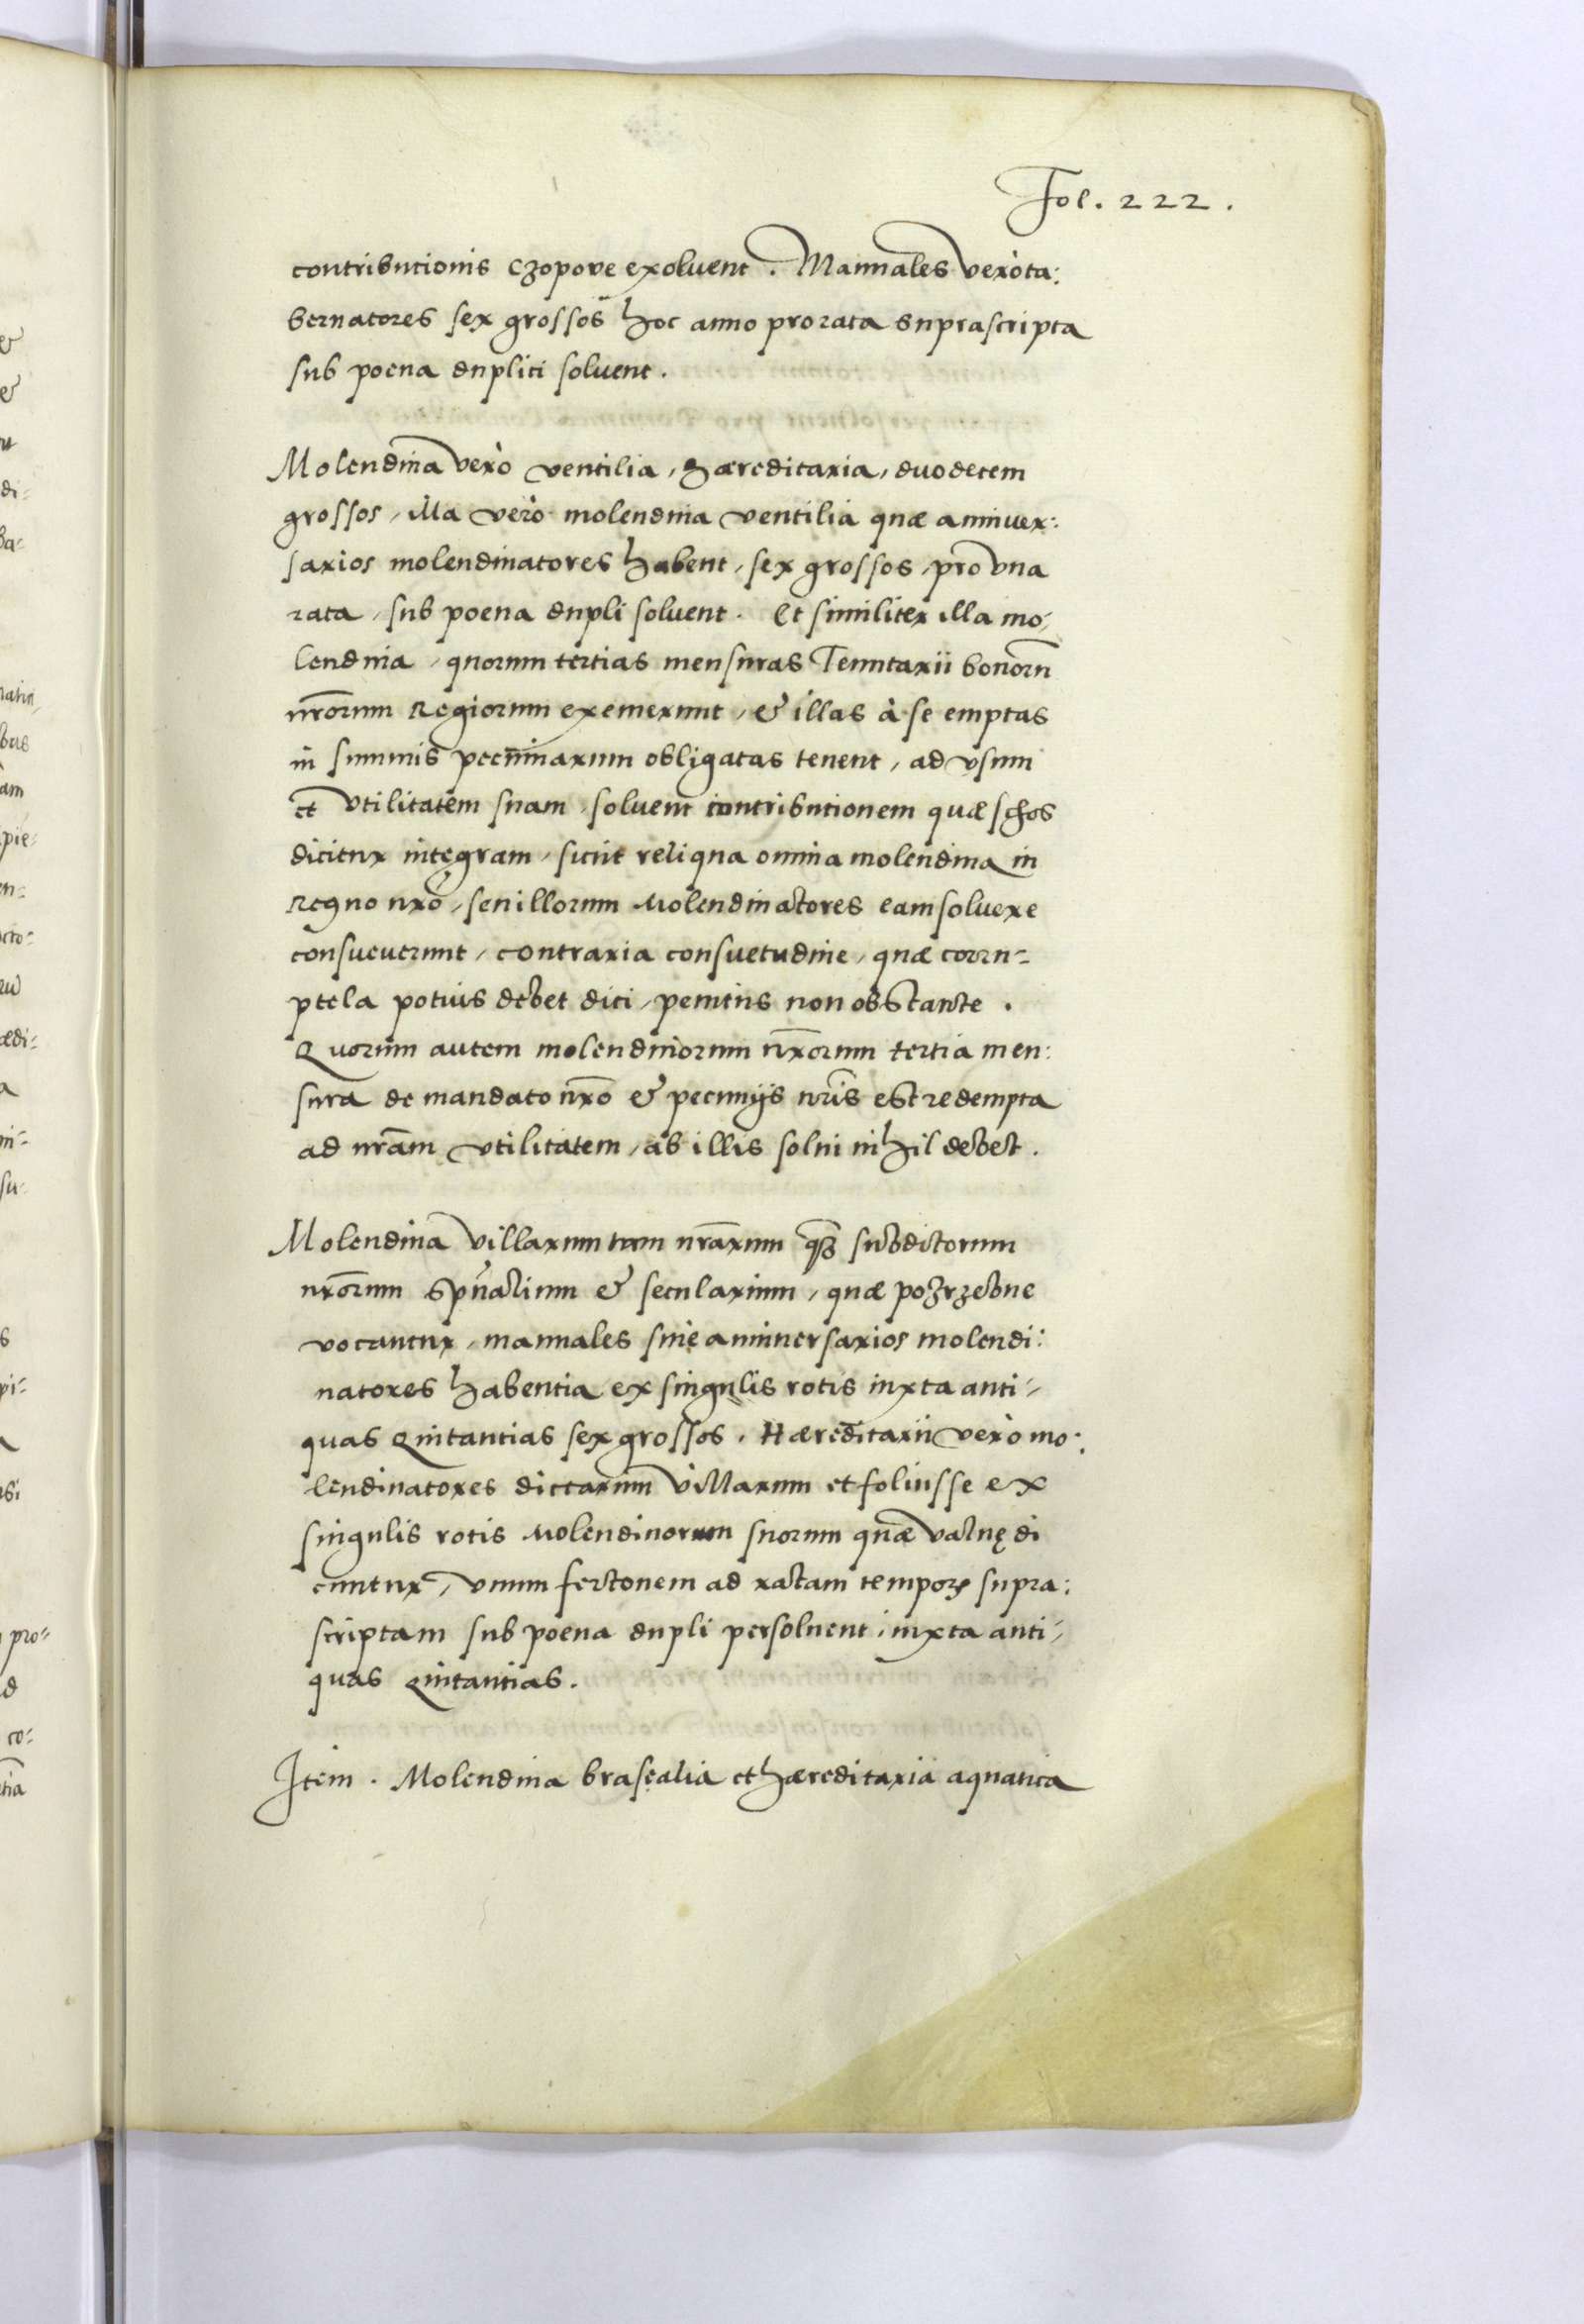 Fol. 222.
contributionis czopove exoluent. Manuales verò ta:
bernatores sex grossos hoc anno pro rata suprascripta
sub poena dupliti soluent.
Molendina verò ventilia, haereditaria, duodecem
grossos, illa verò molendina ventilia quae anniuer:
sarios molendinatores habent, sex grossos, pro vna
rata, sub poena dupli soluent. Et similiter illa mo-
lendina, quorum tertias mensuras Tenutarii bonorũ
nr̃orum Regiorum exemerunt, & illas à se emptas
in summis pecuniarum obligatas tenent, ad vsum
et vtilitatem suam, soluent contributionem quae schos
dicitur integram, sicut reliqua omnia molendina in
Regno nr̃o, seu illorum Molendinatores eam soluere
consueuerunt, contraria consuetudine, quae corru-
ptela potius debet dici, penitus non obstante.
Quorum autem molendinorum nr̃orum tertia men:
sura de mandato nr̃o & pecunijs nr̃is est redempta
ad nr̃am vtilitatem, ab illis solui nihil debet.
Molendina villarum tam nr̃arum qꝫ subditorum
nr̃orum spũalium & secularium, quae pozrzebne
vocantur, manuales siue anniuersarios molendi:
natores habentia ex singulis rotis iuxta anti-
quas Quitantias sex grossos. Haereditarii verò mo:
lendinatores dictarum villarum et foliusse ex
singulis rotis Molendinorum suorum quae valnę di
cuntur, vnum fertonem ad ratam temporꝭ supra:
scriptam sub poena dupli persoluent, iuxta anti-
quas Quitantias.
Item. Molendina brasealia et haereditaria aquatica